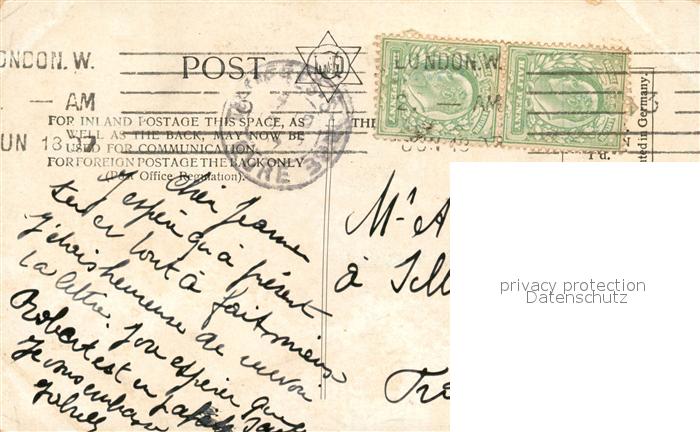 LONDON. W.
POST
LONDON. W.
— AM
2. — AM
FOR INLAND POSTAGE THIS SPACE, AS
WELL AS THE BACK, MAY NOW BE
USED FOR COMMUNICATION.
FOR FOREIGN POSTAGE THE BACK ONLY
(Post Office Regulation).
THE
JUN 18 07
Printed in Germany.
Chère Jeanne
J'espère qu'à présent
tu es tout à fait mieux
J'étais heureuse de recevoir
ta lettre. J'ose espérer que
Robert est en parfaite santé
Je vous embrasse
Mr A
à
privacy protection
Datenschutz